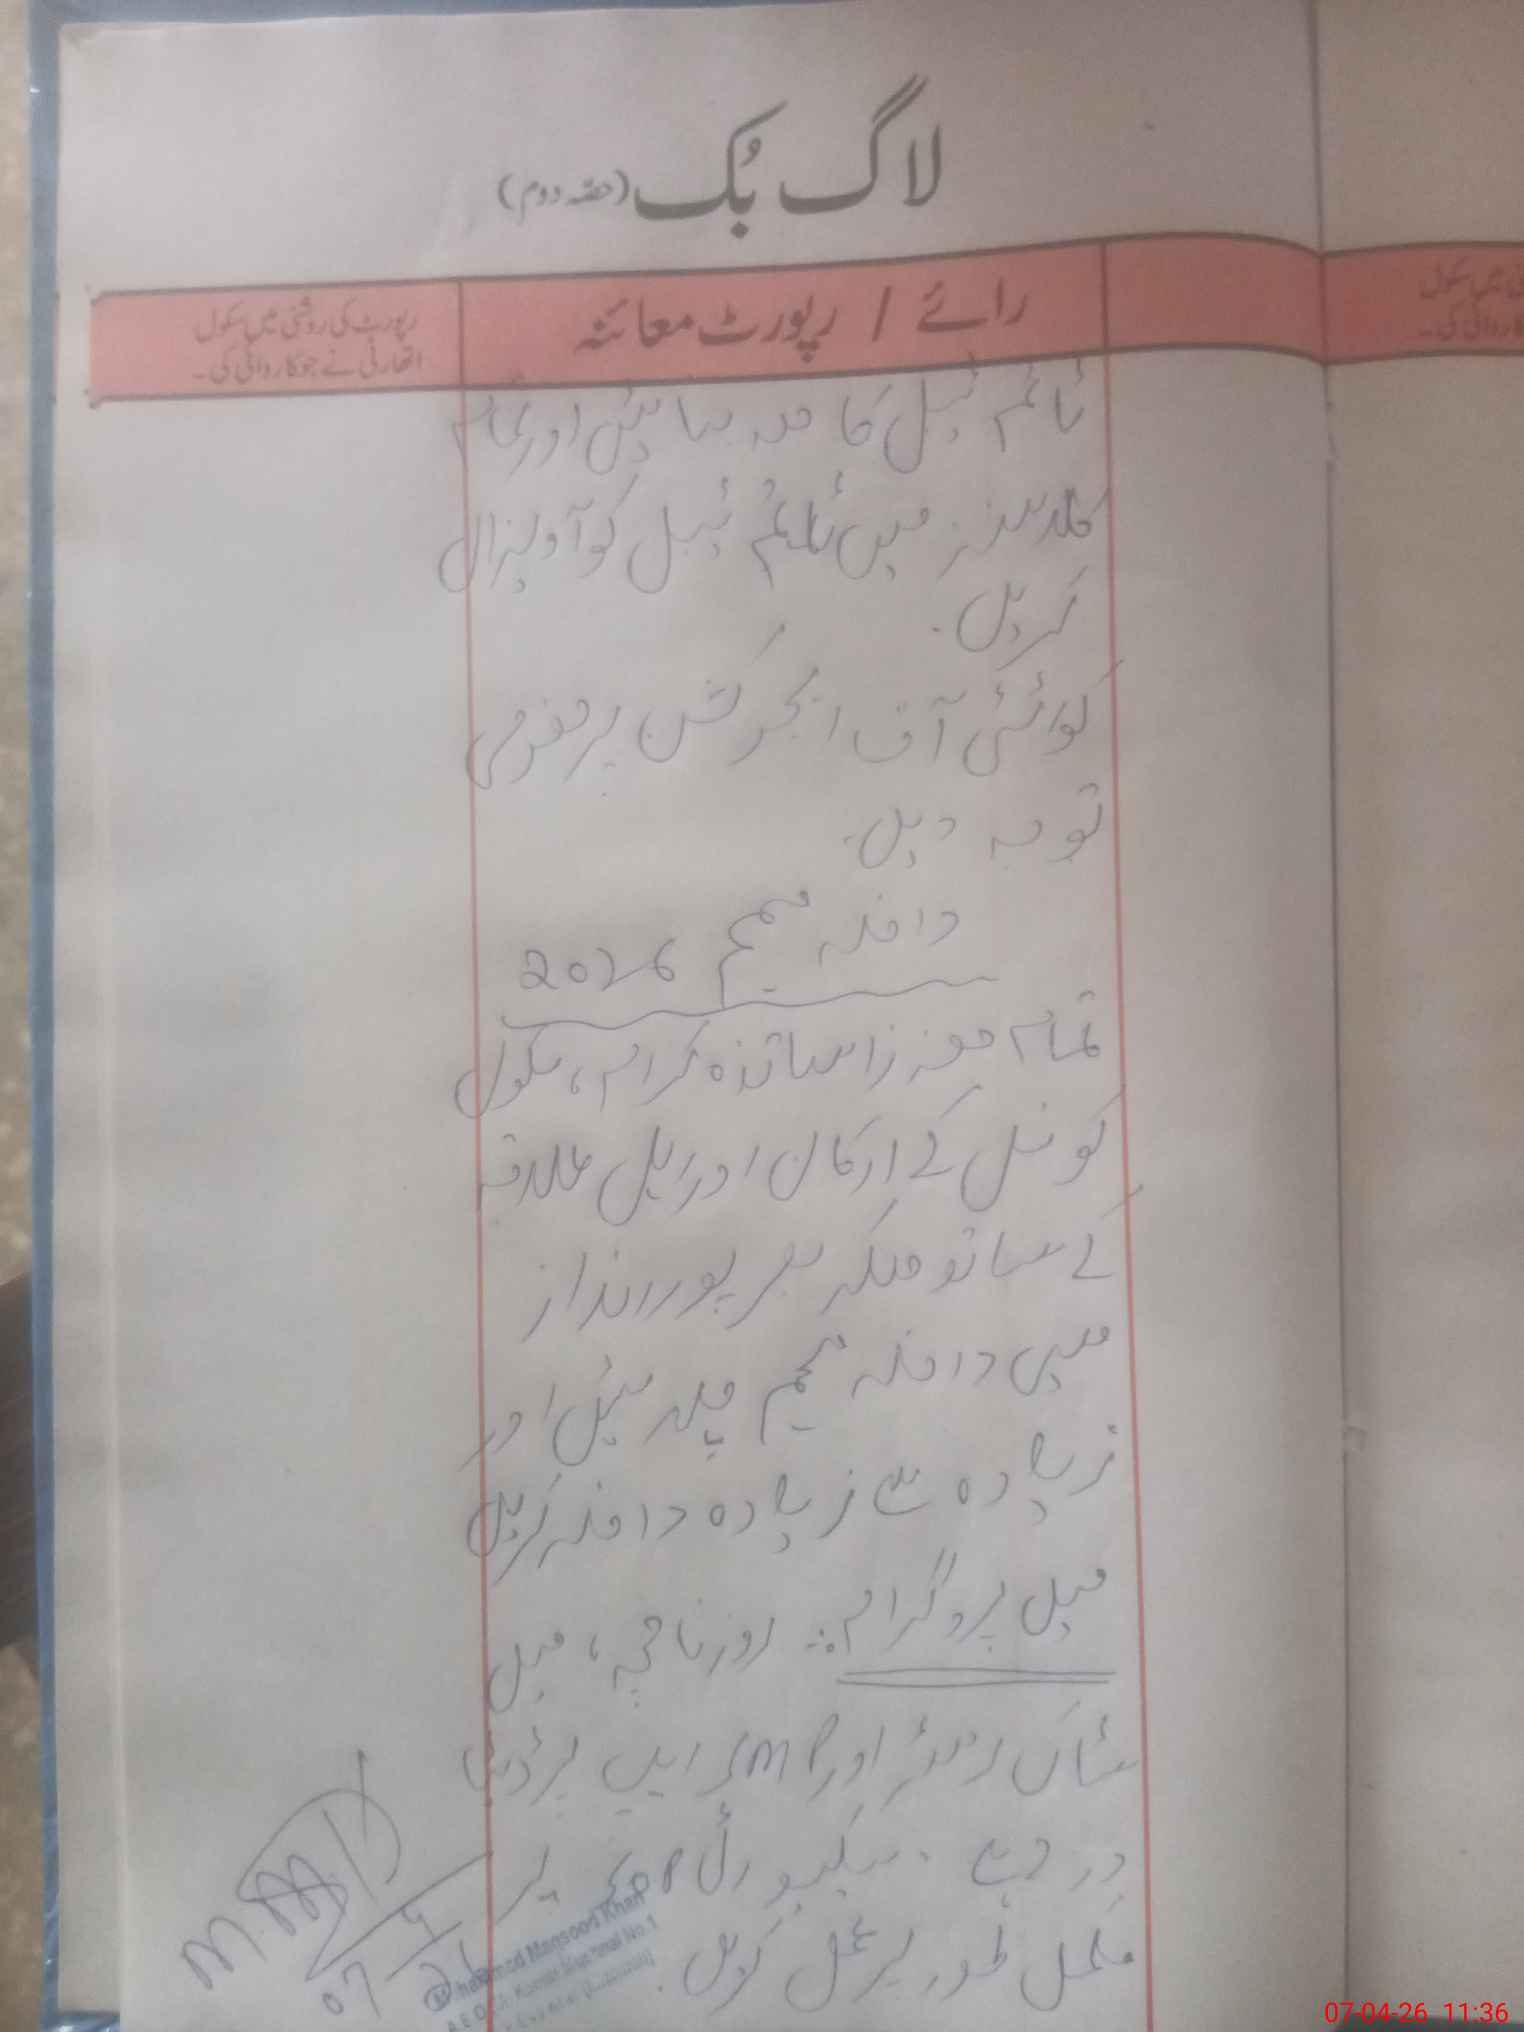 لاگ بُک (حصّہ دوم)
رائے / رپورٹ معائنہ
رپورٹ کی روشنی میں سکول
اتھارٹی نے جو کاروائی کی۔
ٹائم ٹیبل کا حصہ بنائیں اور تمام
کلاسز میں ٹائم ٹیبل کو آویزاں
کریں۔
کوالٹی آف ایجوکیشن پر خصوصی
توجہ دیں۔
داخلہ مہم 2026
تمام معزز اساتذہ کرام، سکول
کونسل کے ارکان اور اہل علاقہ
کے ساتھ ملکر بھرپور انداز
میں داخلہ مہم چلائیں اور
زیادہ سے زیادہ داخلہ کریں
میل پروگرام:۔ روزنامچہ، میل
سٹاک رجسٹر اور SMP ایپ پر ڈیٹا
درج ہے۔ سیکیورٹی SOPs پر
مکمل طور پر عمل کریں۔
07/4/26
Muhammad Maqsood Khan
A.E.O
No.1
07-04-26 11:36